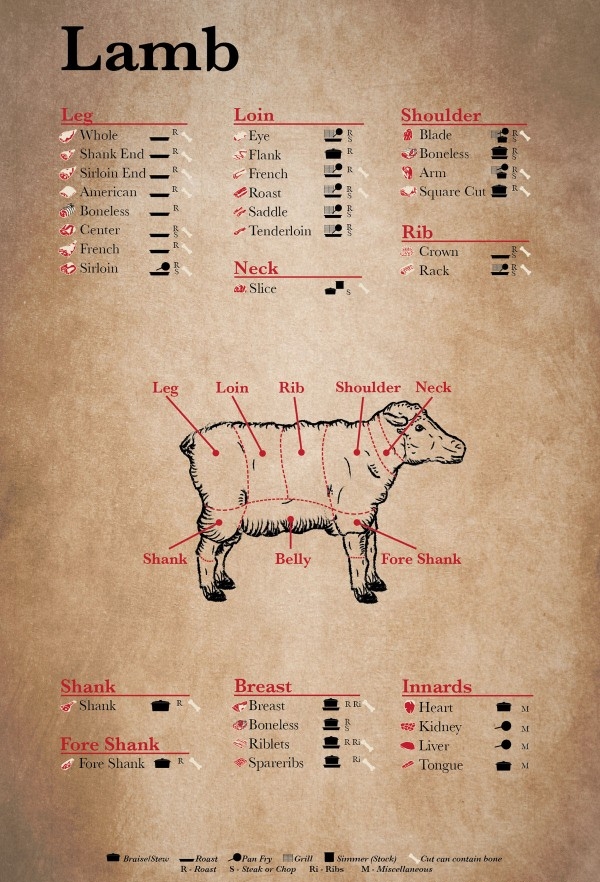 Lamb
Leg
Whole R
Shank End R S
Sirloin End R S
American R
Boneless R
Center R S
French R
Sirloin R S
Loin
Eye R S
Flank R
French R
Roast R S
Saddle R S
Tenderloin R S
Neck
Slice S
Shoulder
Blade R S
Boneless R S
Arm R
Square Cut R
Rib
Crown R S
Rack R S
Leg Loin Rib Shoulder Neck
Shank Belly Fore Shank
Shank
Shank R
Fore Shank
Fore Shank R
Breast
Breast R Ri
Boneless R S
Riblets R Ri
Spareribs Ri
Innards
Heart M
Kidney M
Liver M
Tongue M
Braise/Stew Roast Pan Fry Grill Simmer (Stock) Cut can contain bone
R - Roast S - Steak or Chop Ri - Ribs M - Miscellaneous